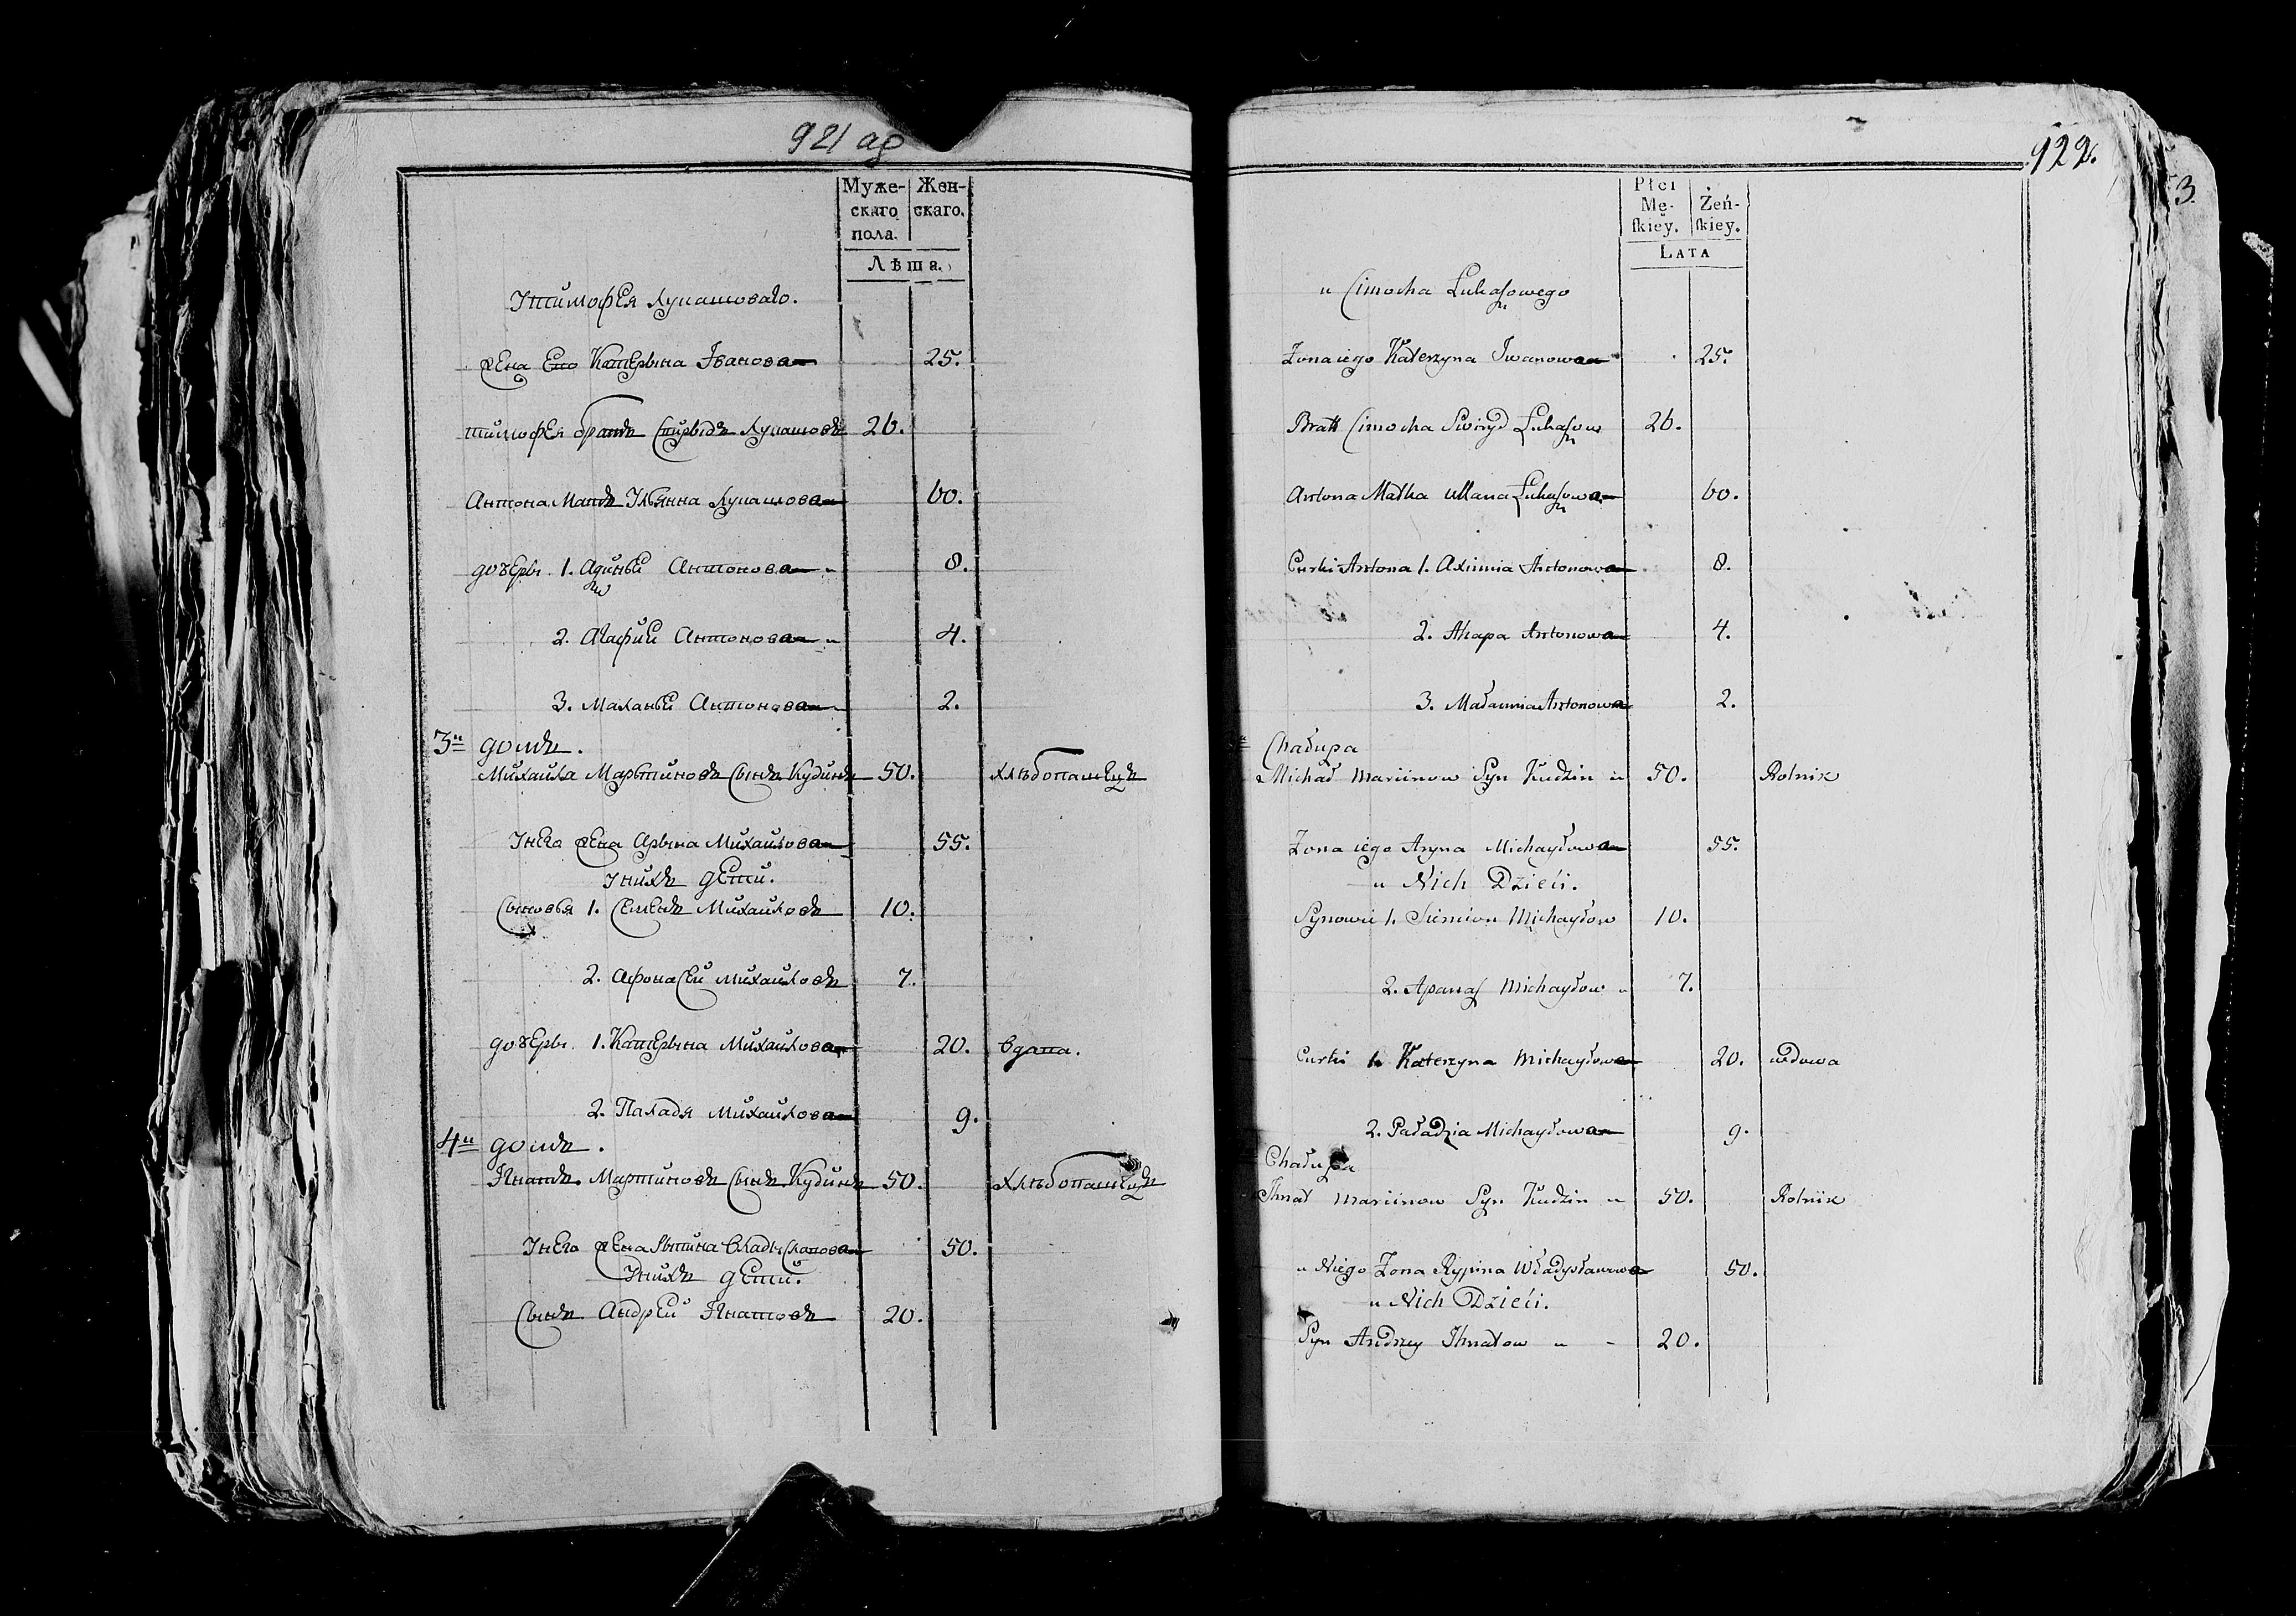 921 ag
Муже-
скаго
пола.
Жен-
скаго.
Лѣта.
Утимофея Лукашоваго.
жена Его Катерына Іванова 25.
тимофея братъ Свирыдъ Лукашовъ 26.
Антона Матъ Ульянна Лукашова 60.
дочеры 1. Антонова 8.
2. Агафии Антонова 4.
3. Маланьи Антонова 2.
3й домъ.
Михайла Мартиновъ Сынъ Кудинъ 50. хлѣбопашецъ
Унего жена Арына Михайлова 55.
Унихъ дети.
Сыновья 1. Семенъ Михайловъ 10.
2. Афонасей Михайловъ 7.
дочеры 1. Катерына Михайлова 20. вдова.
2. Паладя Михайлова 9.
4й домъ.
Игнатъ Мартиновъ Сынъ Кудинъ 50. хлѣбопашецъ
Унего жена 50.
Унихъ дети.
Сынъ Андрей Игнатовъ 20.
922.
3.
Płci
Mę-
ſkiey.
Żeń-
ſkiey.
LATA
u Cimocha Łukaſzowego
Zona iego Katerzyna Iwanowa 25.
Bratt Cimocha Swiryd Łukaſzow 26.
Antona Matka Ullana Łukaſzowa 60.
Curki Antona 1. Axinnia Antonowa 8.
2. Ahapa Antonowa 4.
3. Małannia Antonowa 2.
Chałupa
Michał Marcinow Syn Kudzin 50. Rolnik
Zona iego Aryna Michayłowa 55.
u Nich Dzieci.
Synowie 1. Siemion Michayłow 10.
2. Apanaſ Michayłow 7.
Curki 1. Katerzyna Michayłowa 20. wdowa
2. Paładzia Michayłowa 9.
Chałupa
Ihnat Marcinow Syn Kudzin 50. Rolnik
u Niego Zona Rypina Władysławowa 50.
u Nich Dzieci.
Syn Andrzey Ihnatow 20.